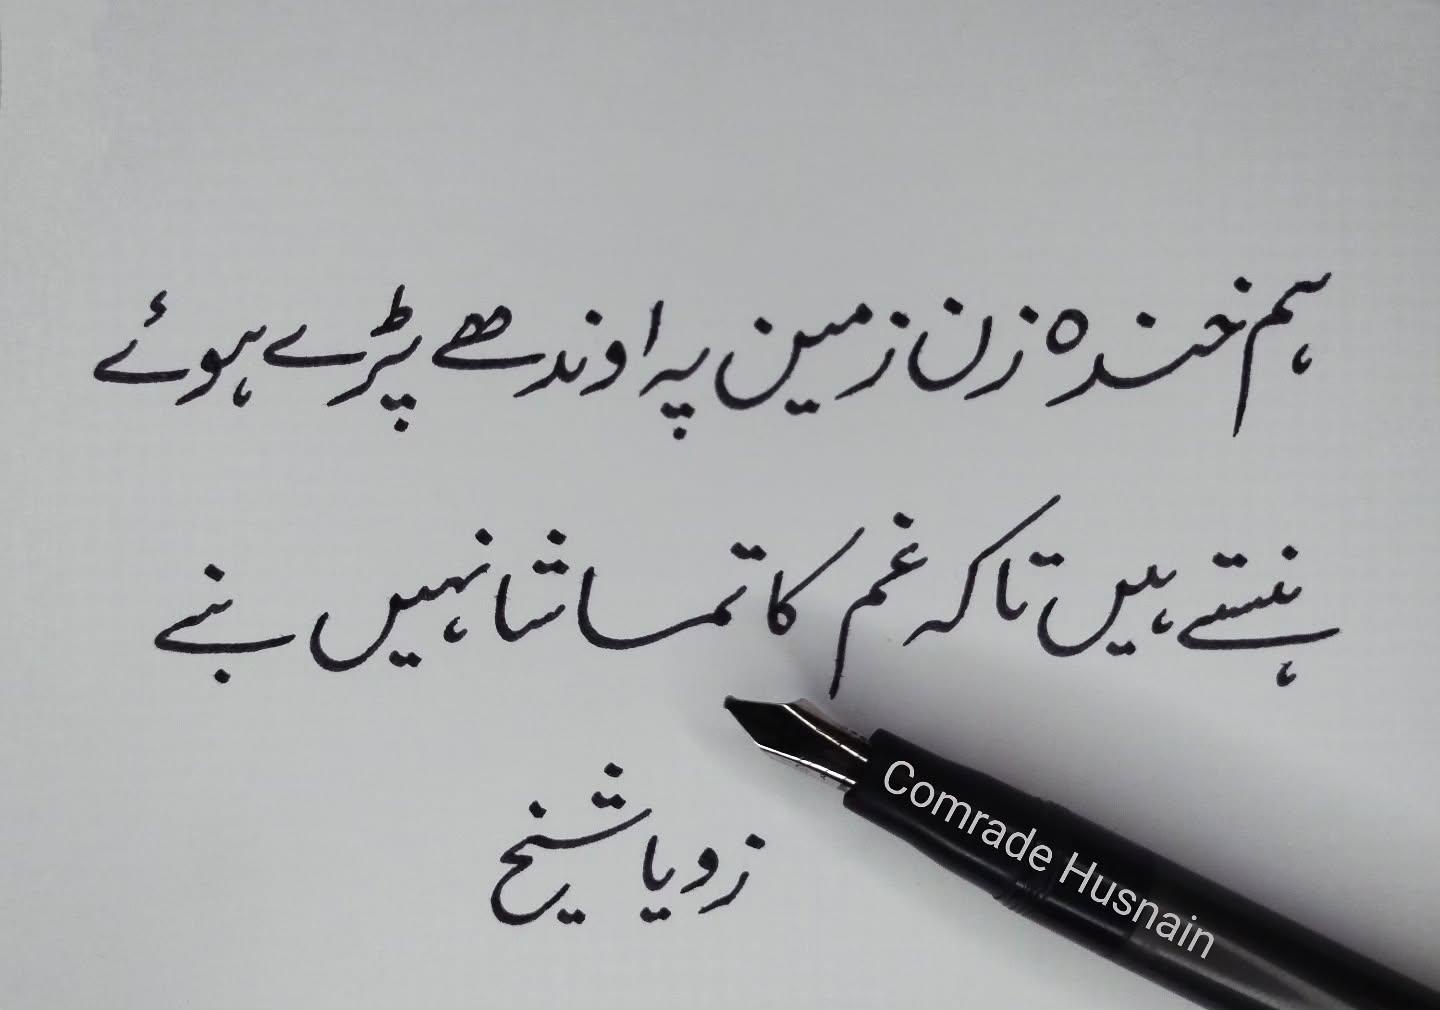 ہم خندہ زن زمین پہ اوندھے پڑے ہوئے
ہنستے ہیں تاکہ غم کا تماشا نہیں بنے
زویا شیخ
Comrade Husnain